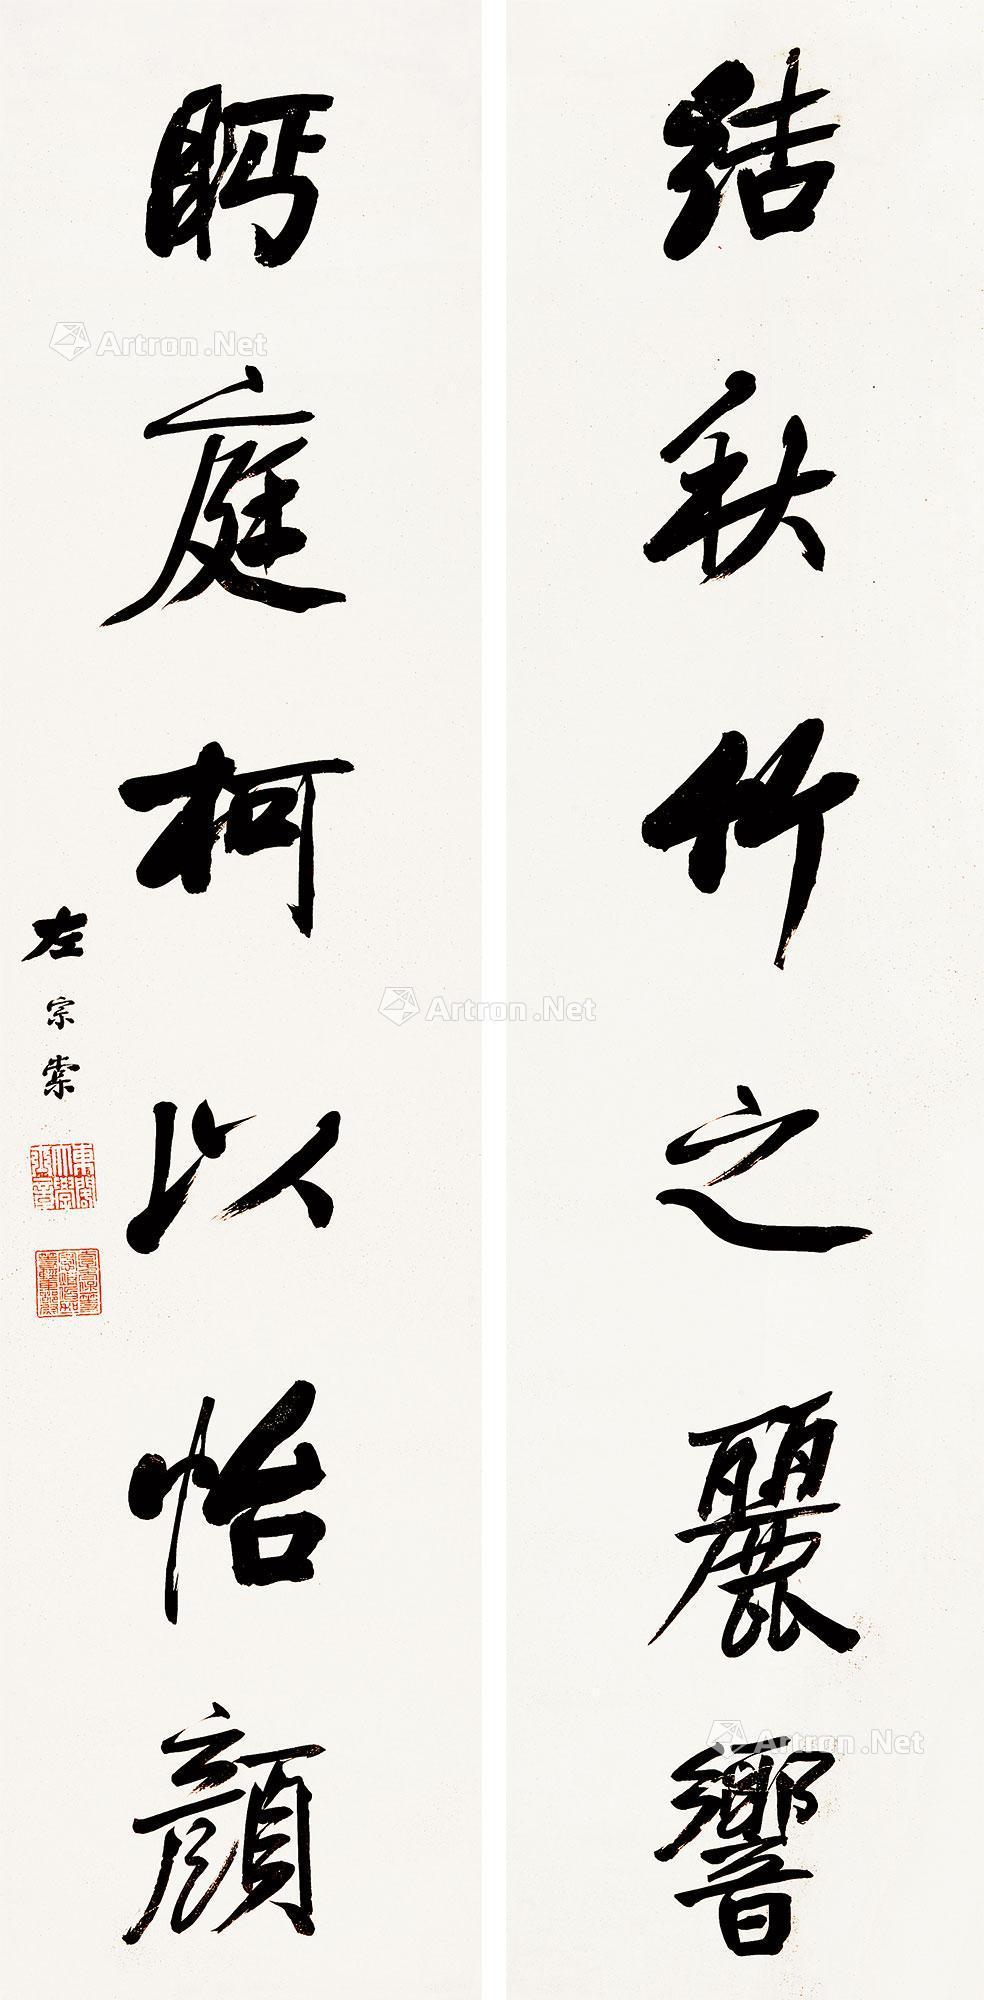 結秋竹之麗響
眄庭柯以怡顏
左宗棠
東閣大學士章
Artron.Net
Artron.Net
Artron.Net